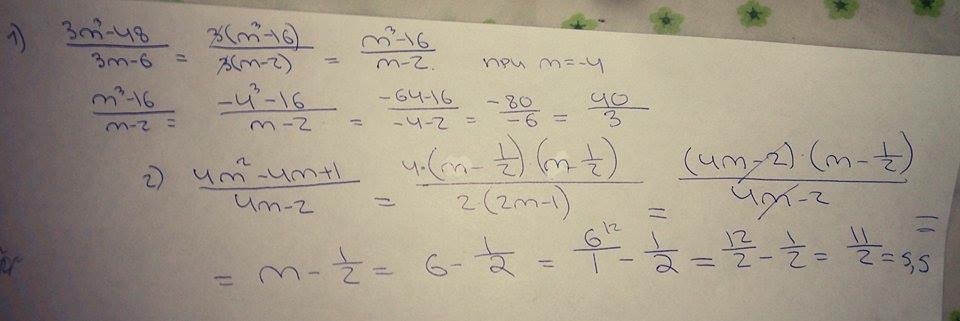 1) (3m³-48)/(3m-6) = (3(m³-16))/(3(m-2)) = (m³-16)/(m-2) при m=-4
(m³-16)/(m-2) = (-4³-16)/(m-2) = (-64-16)/(-4-2) = (-80)/(-6) = 40/3
2) (4m²-4m+1)/(4m-2) = (4·(m-1/2)(m-1/2))/(2(2m-1)) = ((4m-2)·(m-1/2))/(4m-2) =
= m-1/2 = 6-1/2 = 6¹²/1-1/2 = 12/2-1/2 = 11/2 = 5,5